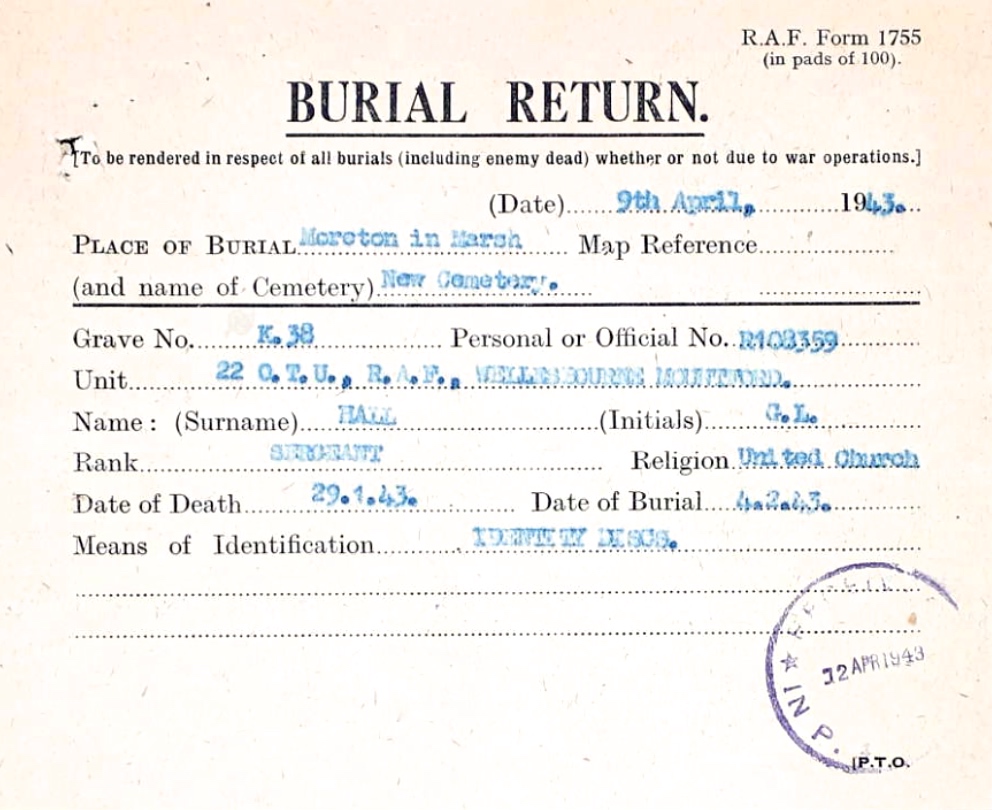 R.A.F. Form 1755
(in pads of 100).
BURIAL RETURN.
[To be rendered in respect of all burials (including enemy dead) whether or not due to war operations.]
(Date) 9th April, 1943.
PLACE OF BURIAL Moreton in Marsh Map Reference
(and name of Cemetery) New Cemetery.
Grave No. K.38 Personal or Official No. R108359
Unit 22 O.T.U., R.A.F., WELLESBOURNE MOUNTFORD.
Name: (Surname) HALL (Initials) G.L.
Rank SERGEANT Religion United Church
Date of Death 29.1.43. Date of Burial 4.2.43.
Means of Identification IDENTITY DISCS.
12 APR 1943
IN P.
P.T.O.